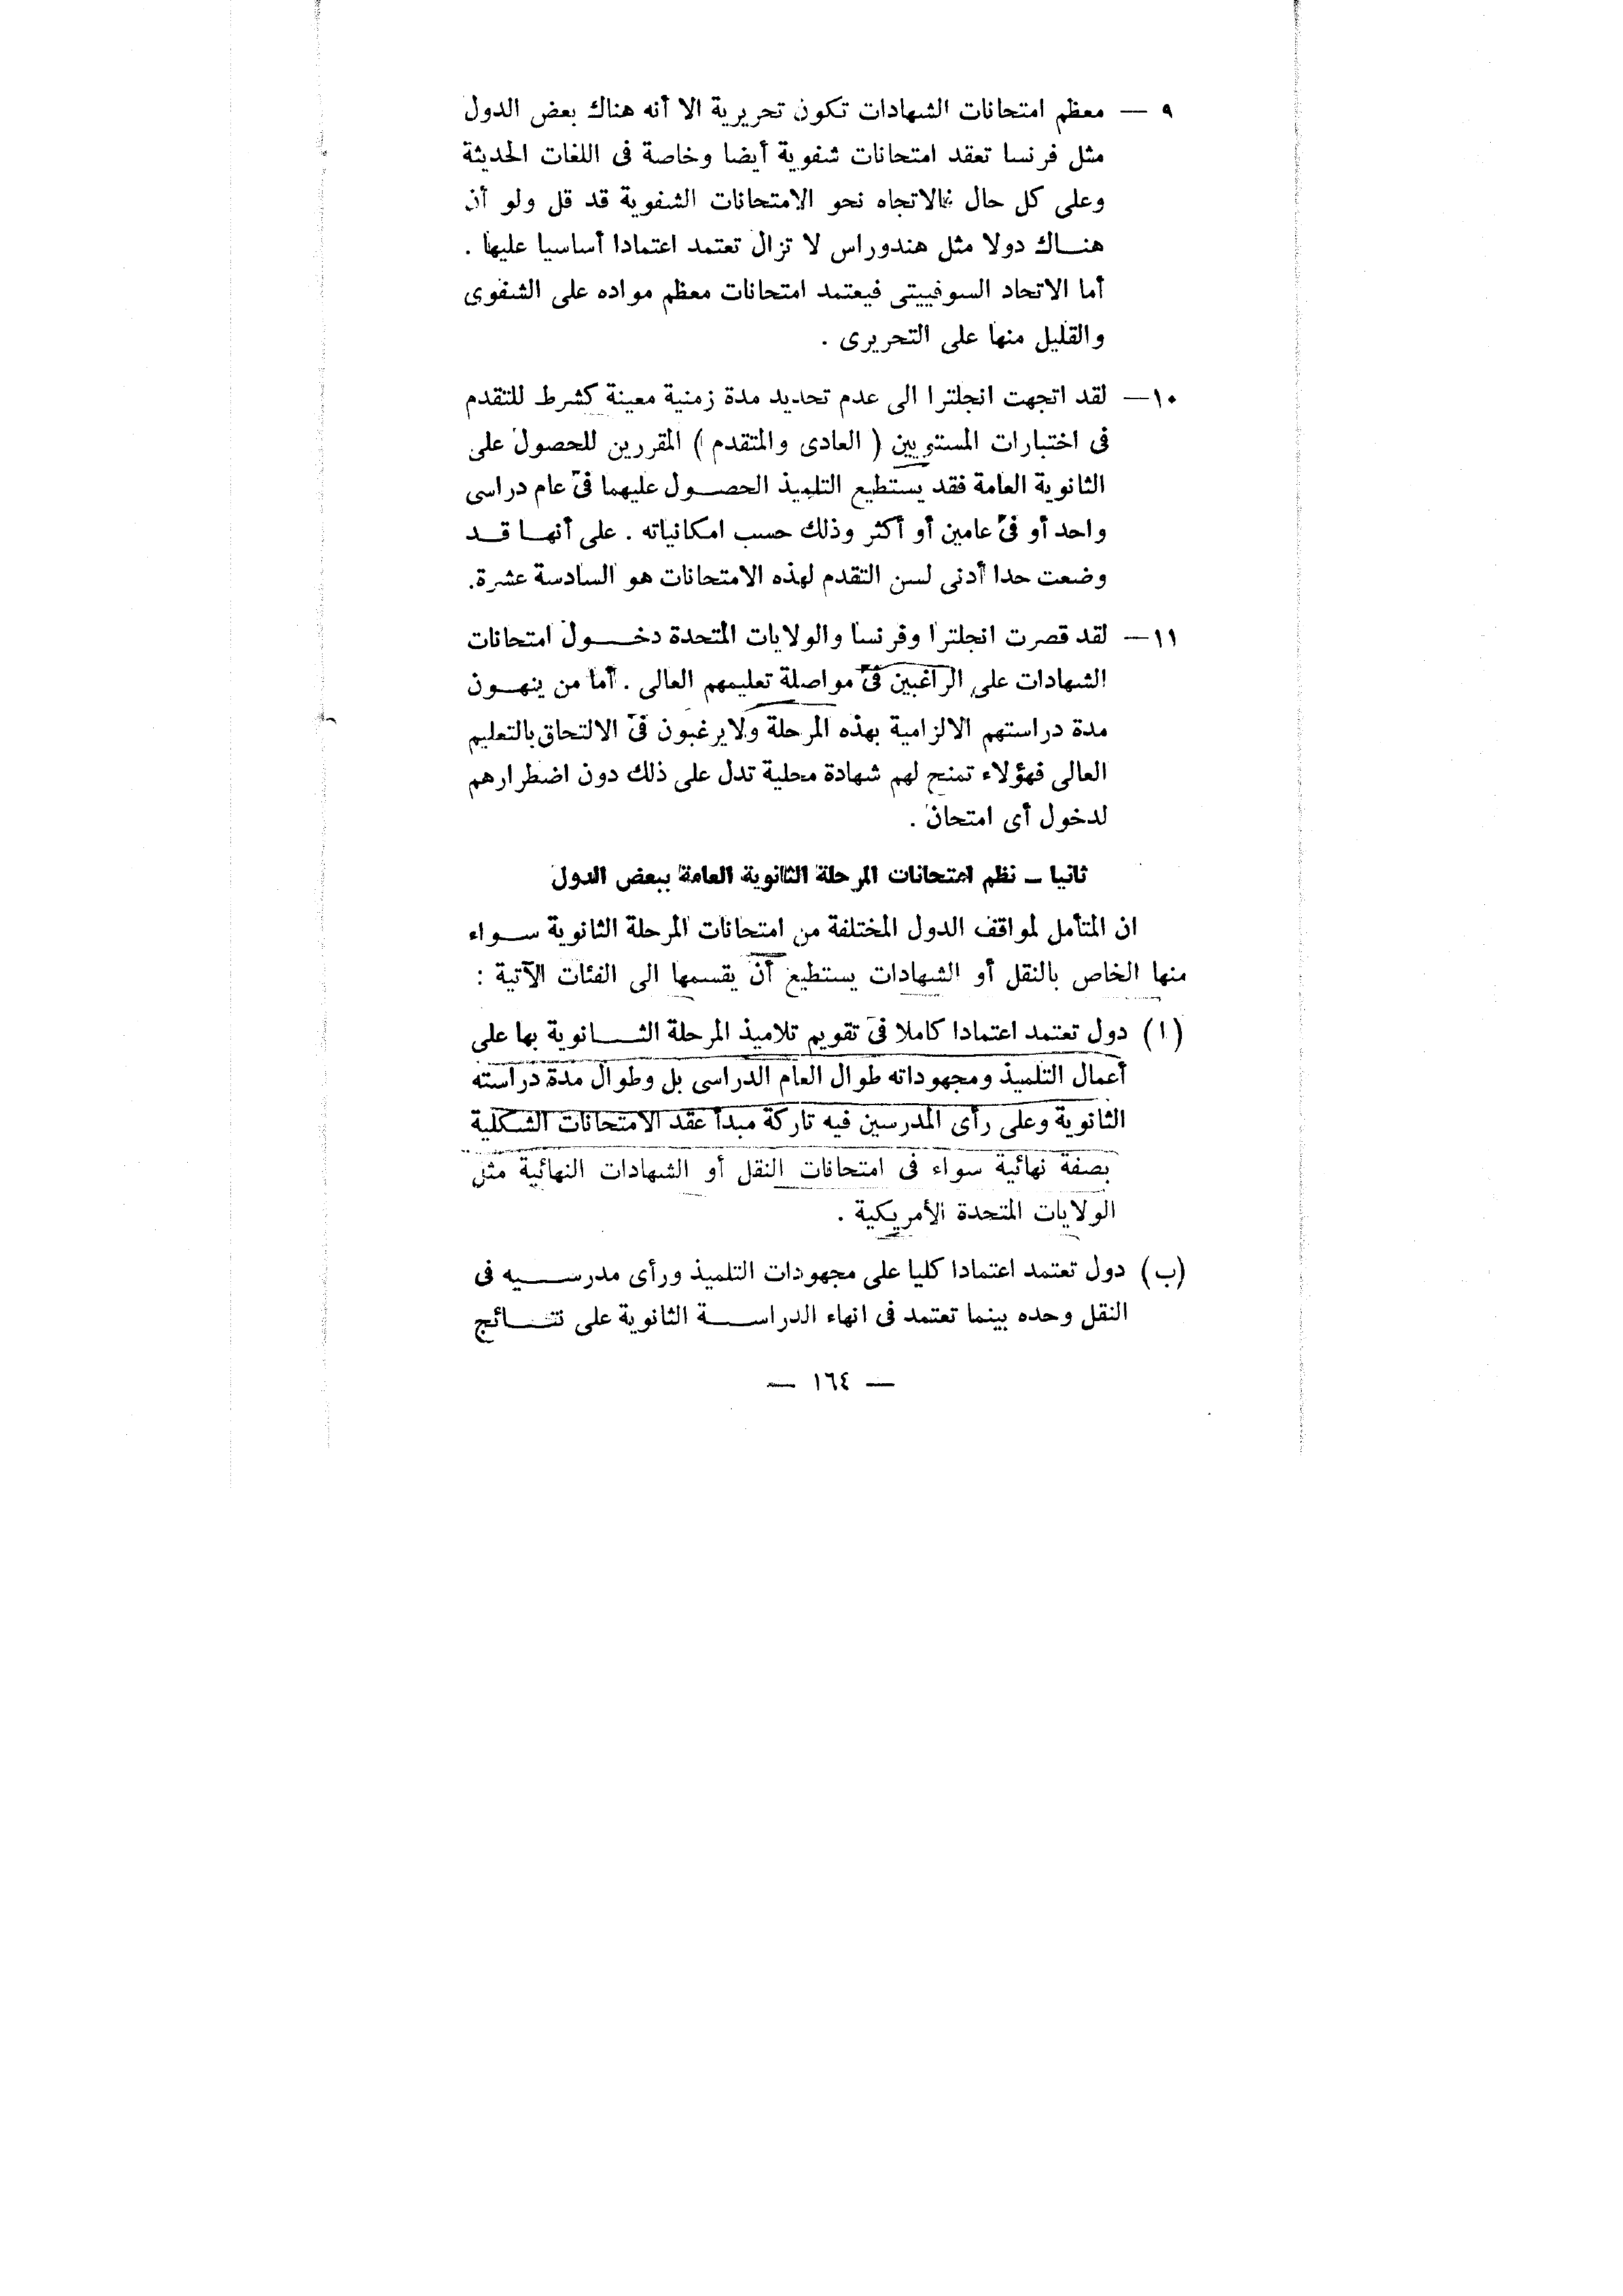 ٩ — معظم امتحانات الشهادات تكون تحريرية الا أنه هناك بعض الدول
مثل فرنسا تعقد امتحانات شفوية أيضا وخاصة فى اللغات الحديثة
وعلى كل حال فالاتجاه نحو الامتحانات الشفوية قد قل ولو أن
هنـــاك دولا مثل هندوراس لا تزال تعتمد اعتمادا أساسيا عليها .
أما الاتحاد السوفييتى فيعتمد امتحانات معظم مواده على الشفوى
والقليل منها على التحريرى .
١٠— لقد اتجهت انجلترا الى عدم تحديد مدة زمنية معينة كشرط للتقدم
فى اختبارات المستويين ( العادى والمتقدم ) المقررين للحصول على
الثانوية العامة فقد يستطيع التلميذ الحصـــول عليهما فى عام دراسى
واحد أو فى عامين أو أكثر وذلك حسب امكانياته . على أنهـــا قـــد
وضعت حدا أدنى لسن التقدم لهذه الامتحانات هو السادسة عشرة.
١١— لقد قصرت انجلترا وفرنسا والولايات المتحدة دخـــول امتحانات
الشهادات على الراغبين فى مواصلة تعليمهم العالى . أما من ينهـــون
مدة دراستهم الالزامية بهذه المرحلة ولايرغبون فى الالتحاق بالتعليم
العالى فهؤلاء تمنح لهم شهادة محلية تدل على ذلك دون اضطرارهم
لدخول أى امتحان .
ثانيا ــ نظم امتحانات المرحلة الثانوية العامة ببعض الدول
ان المتأمل لمواقف الدول المختلفة من امتحانات المرحلة الثانوية ســـواء
منها الخاص بالنقل أو الشهادات يستطيع أن يقسمها الى الفئات الآتية :
(ا) دول تعتمد اعتمادا كاملا فى تقويم تلاميذ المرحلة الثـــانوية بها على
أعمال التلميذ ومجهوداته طوال العام الدراسى بل وطوال مدة دراسته
الثانوية وعلى رأى المدرسين فيه تاركة مبدأ عقد الامتحانات الشكلية
بصفة نهائية سواء فى امتحانات النقل أو الشهادات النهائية مثل
الولايات المتحدة الأمريكية .
(ب) دول تعتمد اعتمادا كليا على مجهودات التلميذ ورأى مدرســـيه فى
النقل وحده بينما تعتمد فى انهاء الدراســـة الثانوية على نتـــائج
— ١٦٤ —